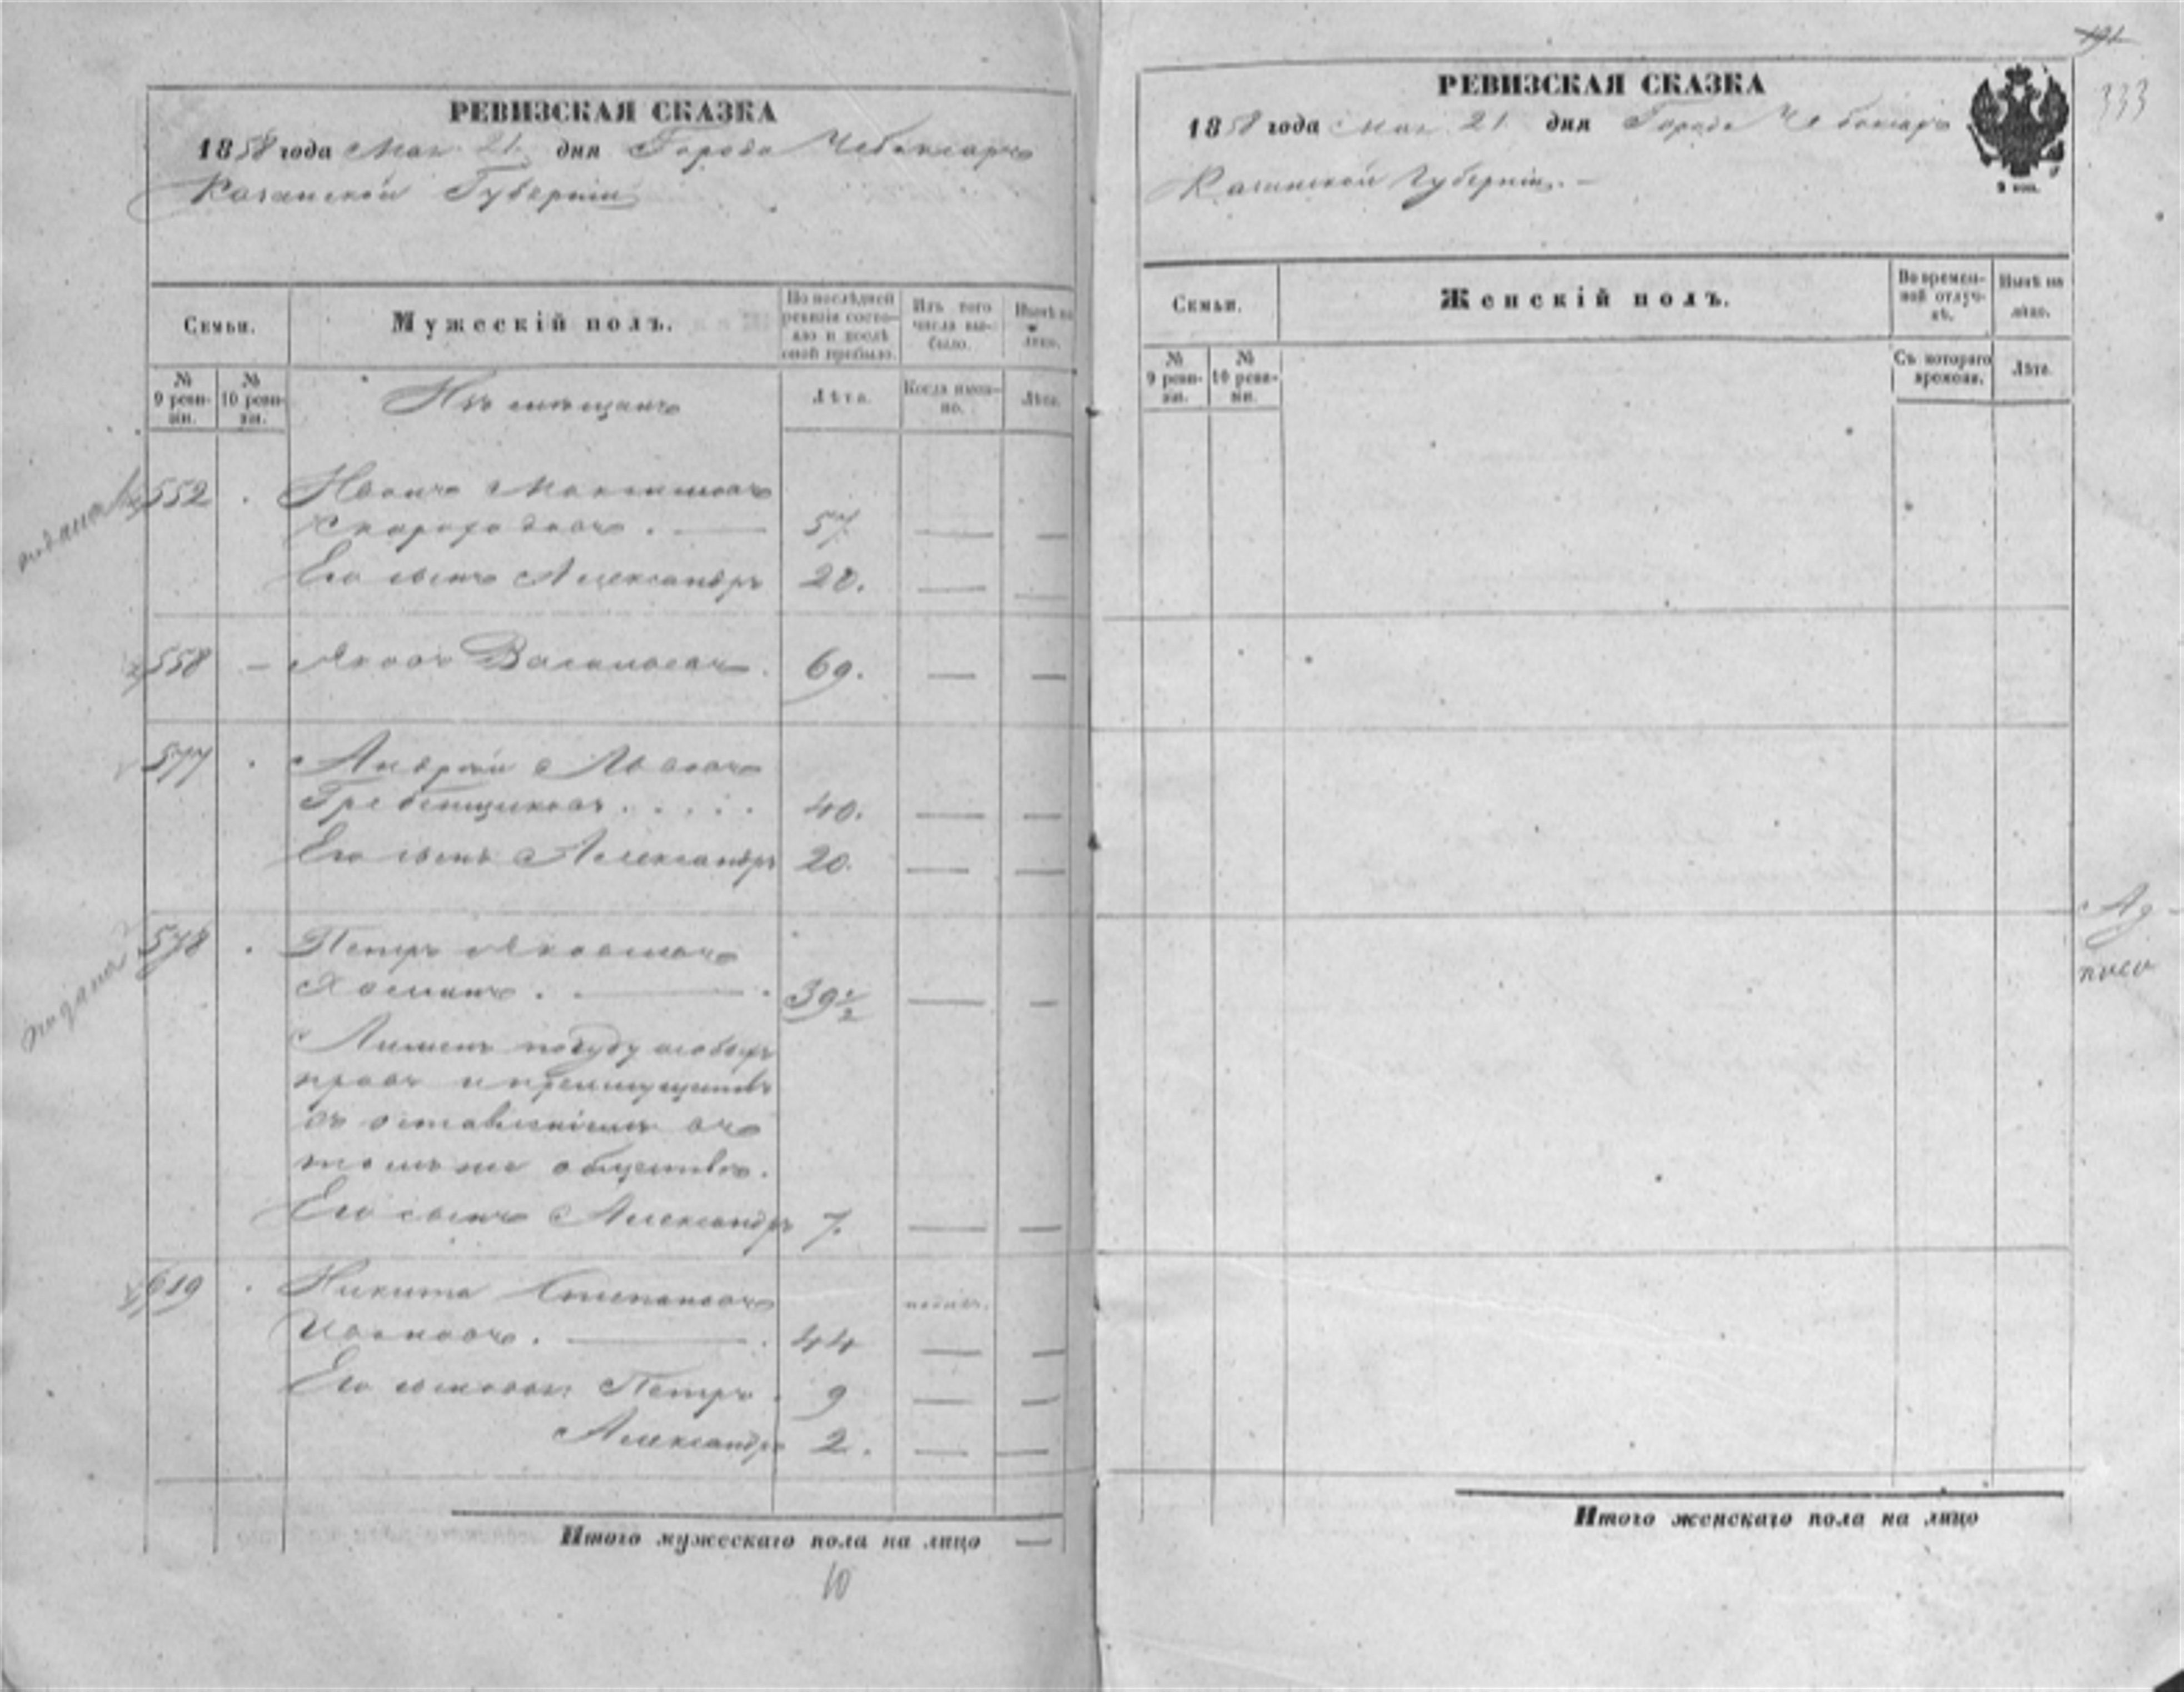 РЕВИЗСКАЯ СКАЗКА
1858 года Мая 21 дня Города Чебоксаръ
Казанской Губерніи
Семьи.
Мужескій полъ.
По послѣдней ревизіи состояло и послѣ оной прибыло.
Изъ того числа выбыло.
Нынѣ на лицо.
№ 9 ревизіи.
№ 10 ревизіи.
Изъ мѣщанъ
Лѣта.
Когда именно.
Лѣта.
552 Иванъ Максимовъ
Скороходовъ. 57
Его сынъ Александръ 28.
558 — Яковъ Васильевъ. 69.
577 Андрей Львовъ
Гребенщиковъ 40.
Его сынъ Александръ 20.
578 Петръ Яковлевъ
39½
Лишенъ по суду особыхъ
правъ и преимуществъ
съ оставленіемъ въ
томъ же обществѣ.
Его сынъ Александръ 7.
619 Никита Степановъ
Ивановъ. 44
Его сыновья Петръ 9
Александръ 2.
Итого мужескаго пола на лицо —
10
191
333
РЕВИЗСКАЯ СКАЗКА
1858 года Мая 21 дня Города Чебоксаръ
Казанской Губерніи. —
Семьи.
Женскій полъ.
Во временной отлучкѣ.
Нынѣ на лицо.
№ 9 ревизіи.
№ 10 ревизіи.
Съ котораго времени.
Лѣта.
Итого женскаго пола на лицо